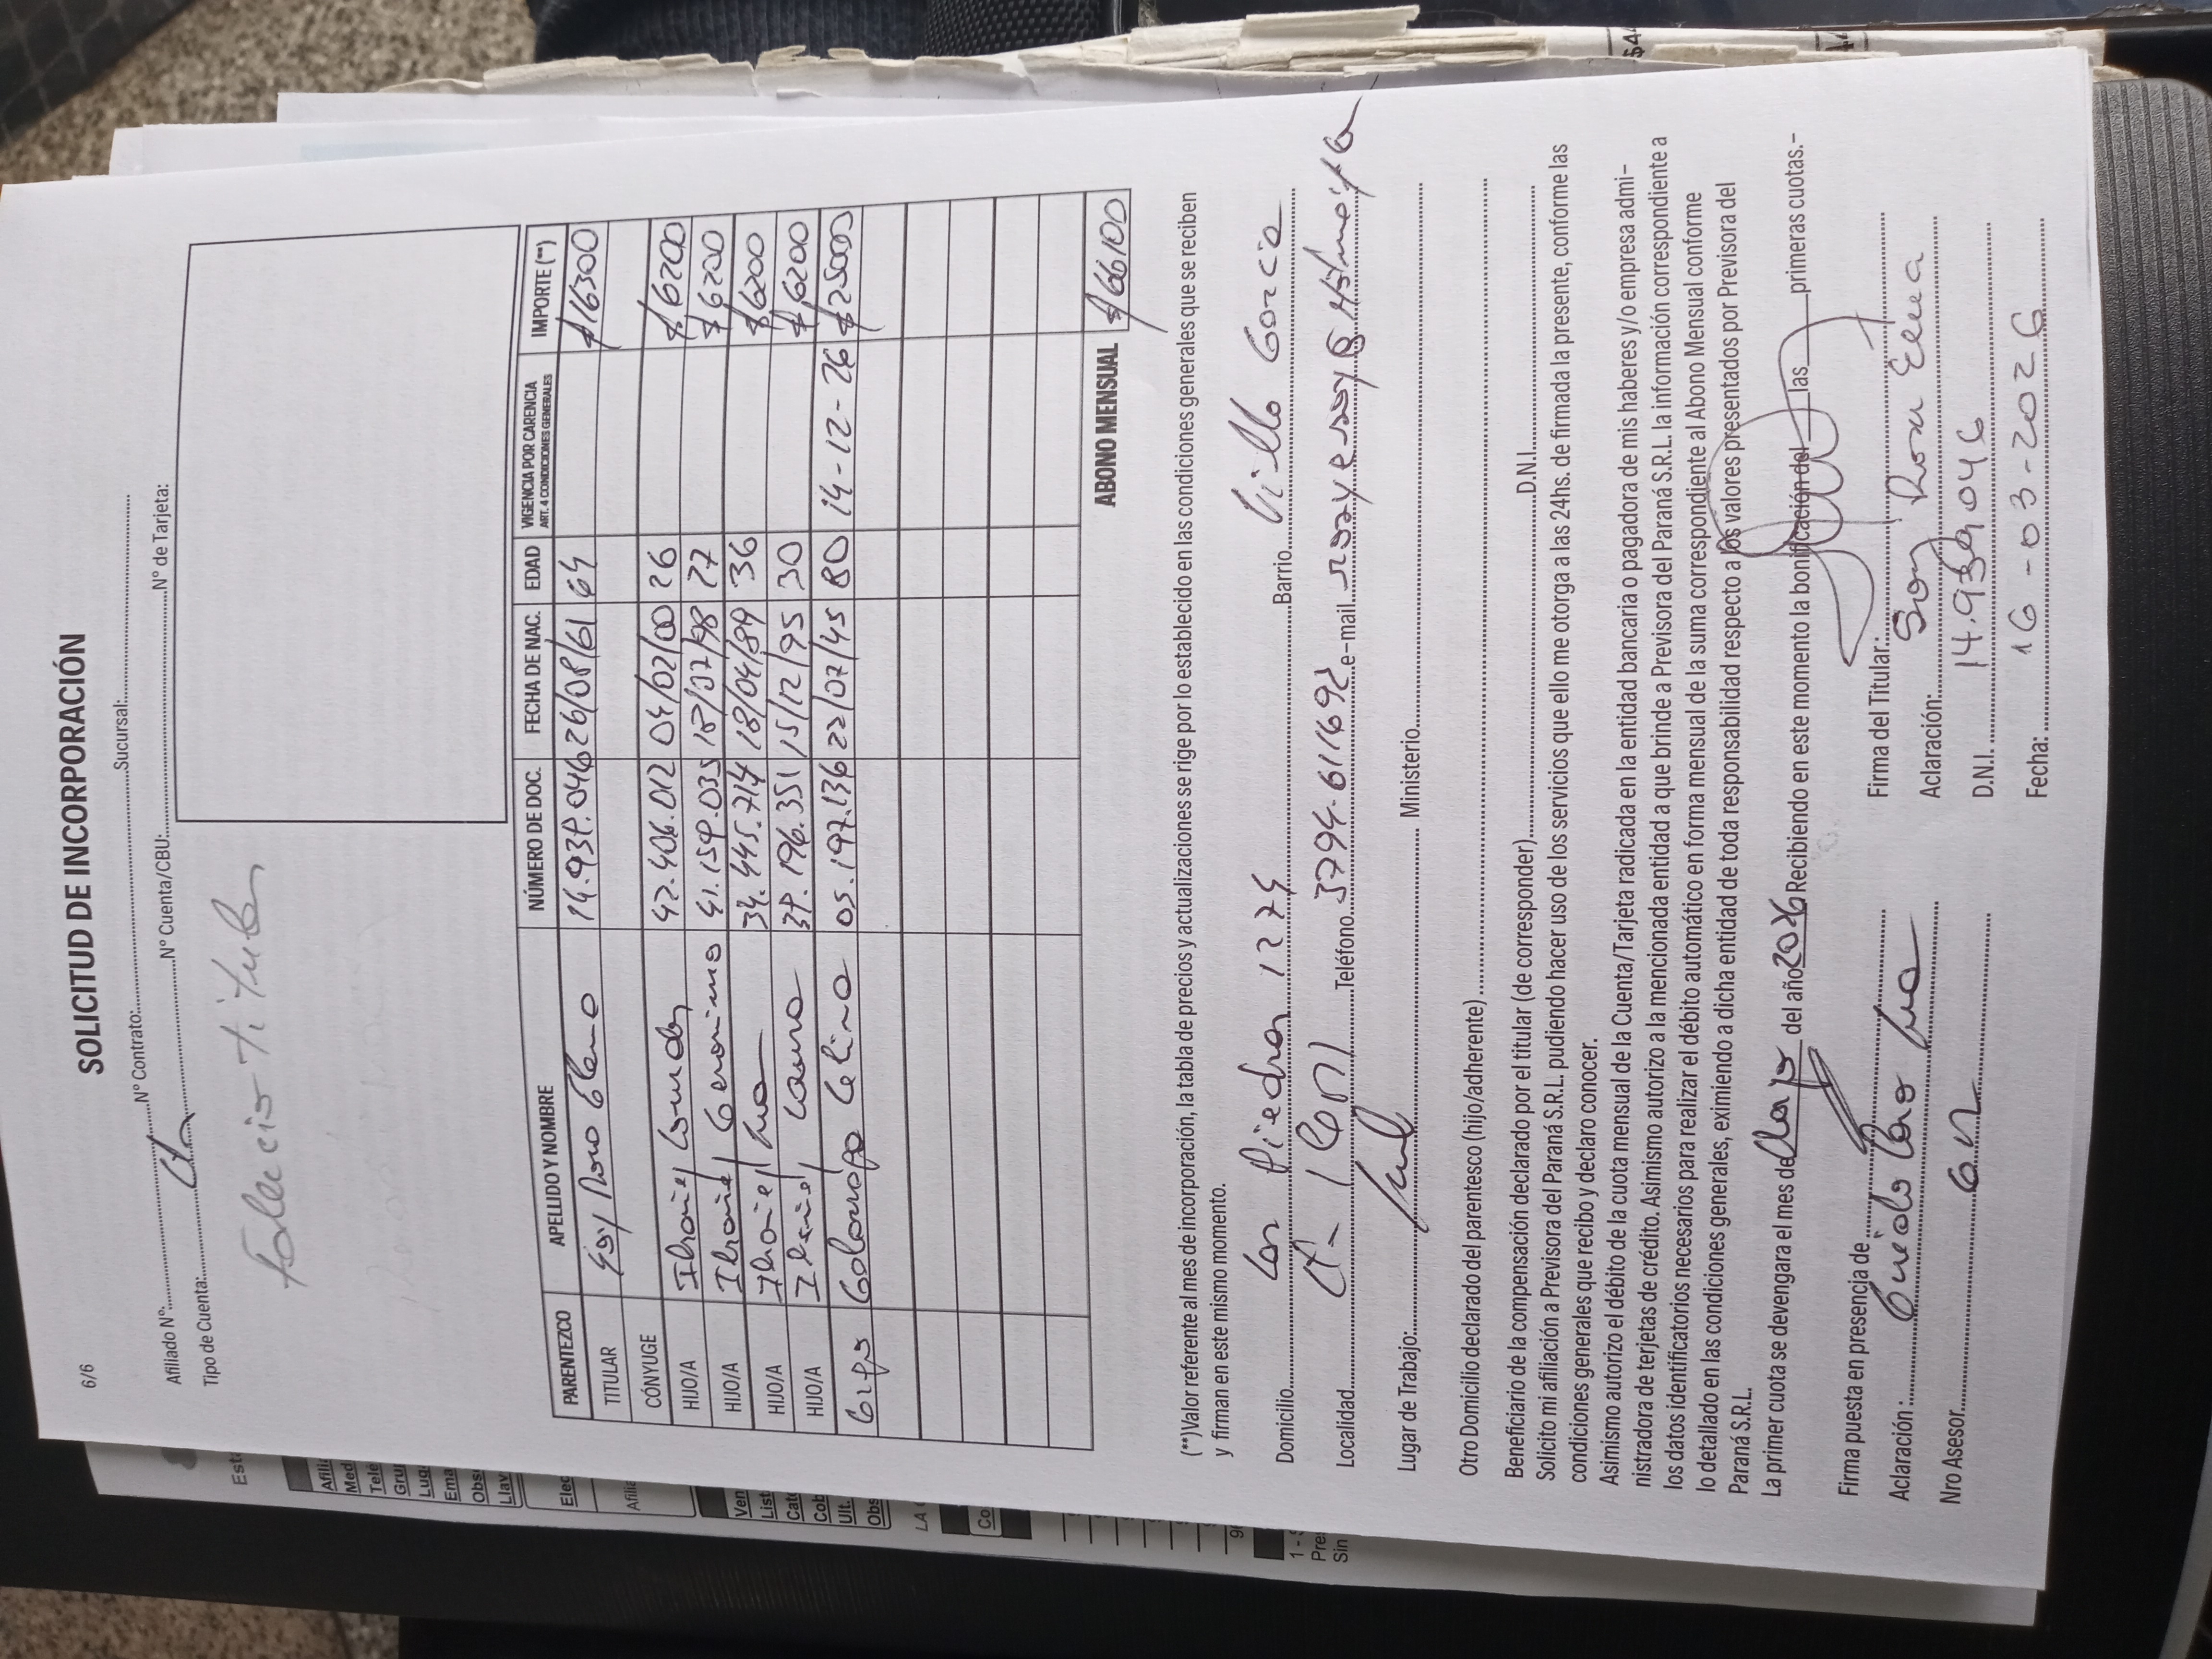 6/6
SOLICITUD DE INCORPORACIÓN
Afiliado Nº: Nº Contrato: Sucursal:
Tipo de Cuenta: Nº Cuenta/CBU: Nº de Tarjeta:
titular
PARENTEZCO APELLIDO Y NOMBRE NÚMERO DE DOC. FECHA DE NAC. EDAD VIGENCIA POR CARENCIA ART. 4 CONDICIONES GENERALES IMPORTE (**)
TITULAR Rosa Elena 14.939.046 26/08/61 64 $16300
CÓNYUGE
HIJO/A Lourdes 42.406.012 04/02/00 26 $6200
HIJO/A Geronimo 41.159.035 18/07/98 27 $6200
HIJO/A 34.445.714 18/04/89 36 $6200
HIJO/A Laura 39.196.351 15/12/95 30 $6200
Celina 05.197.136 22/07/45 80 14-12-26 $25000
ABONO MENSUAL $66100
(**)Valor referente al mes de incorporación, la tabla de precios y actualizaciones se rige por lo establecido en las condiciones generales que se reciben
y firman en este mismo momento.
Domicilio Las Piedras 1274 Barrio Villa Garcia
Localidad Teléfono 3794-611692 e-mail
Lugar de Trabajo: Ministerio
Otro Domicilio declarado del parentesco (hijo/adherente)
Beneficiario de la compensación declarado por el titular (de corresponder) D.N.I.
Solicito mi afiliación a Previsora del Paraná S.R.L. pudiendo hacer uso de los servicios que ello me otorga a las 24hs. de firmada la presente, conforme las
condiciones generales que recibo y declaro conocer.
Asimismo autorizo el débito de la cuota mensual de la Cuenta/Tarjeta radicada en la entidad bancaria o pagadora de mis haberes y/o empresa admi-
nistradora de terjetas de crédito. Asimismo autorizo a la mencionada entidad a que brinde a Previsora del Paraná S.R.L. la información correspondiente a
los datos identificatorios necesarios para realizar el débito automático en forma mensual de la suma correspondiente al Abono Mensual conforme
lo detallado en las condiciones generales, eximiendo a dicha entidad de toda responsabilidad respecto a los valores presentados por Previsora del
Paraná S.R.L.
La primer cuota se devengara el mes de del año 2026 Recibiendo en este momento la bonificación del las primeras cuotas.-
Firma puesta en presencia de Firma del Titular:
Aclaración: Aclaración: Rosa Elena
Nro Asesor D.N.I. 14.939.046
Fecha: 16-03-2026